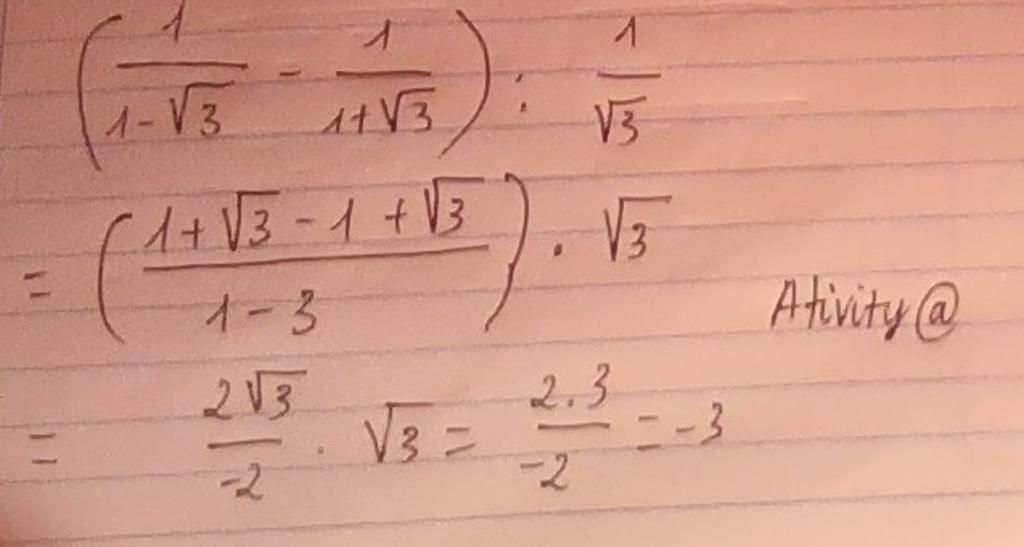 (1/(1-√3) - 1/(1+√3)) : 1/√3
= ((1+√3-1+√3)/(1-3)) . √3
Ativity@
= 2√3/-2 . √3 = 2.3/-2 = -3